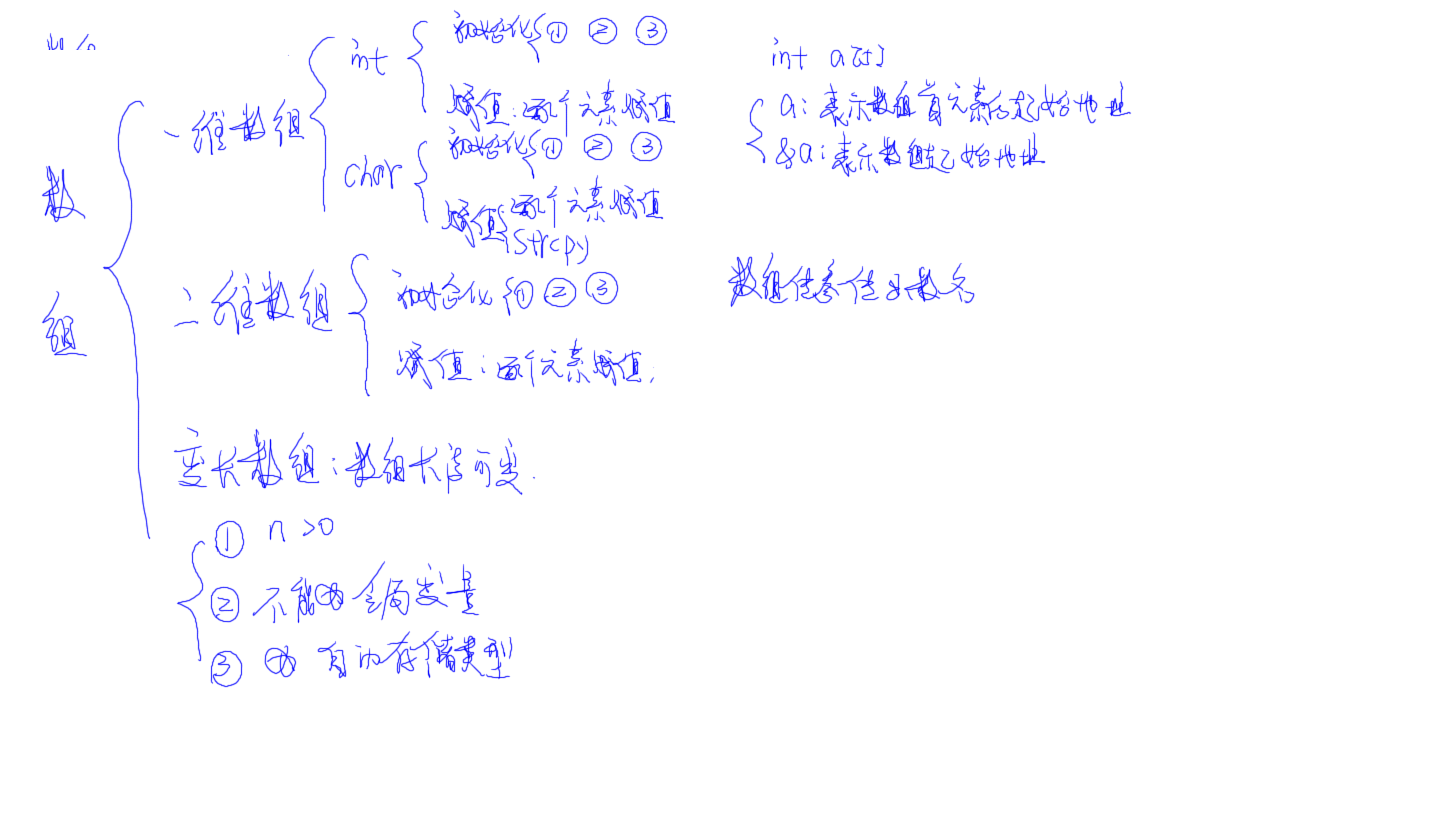 数组
一维数组
int
初始化 ① ② ③
赋值：逐个元素赋值
char
初始化 ① ② ③
赋值：逐个元素赋值
(strcpy)
二维数组
初始化 ① ② ③
赋值：逐个元素赋值
变长数组：数组长度可变.
① n >0
② 不能为全局变量
③ 为自动存储类型
int a[5]
a：表示数组首元素的起始地址
&a：表示数组起始地址
数组传参传